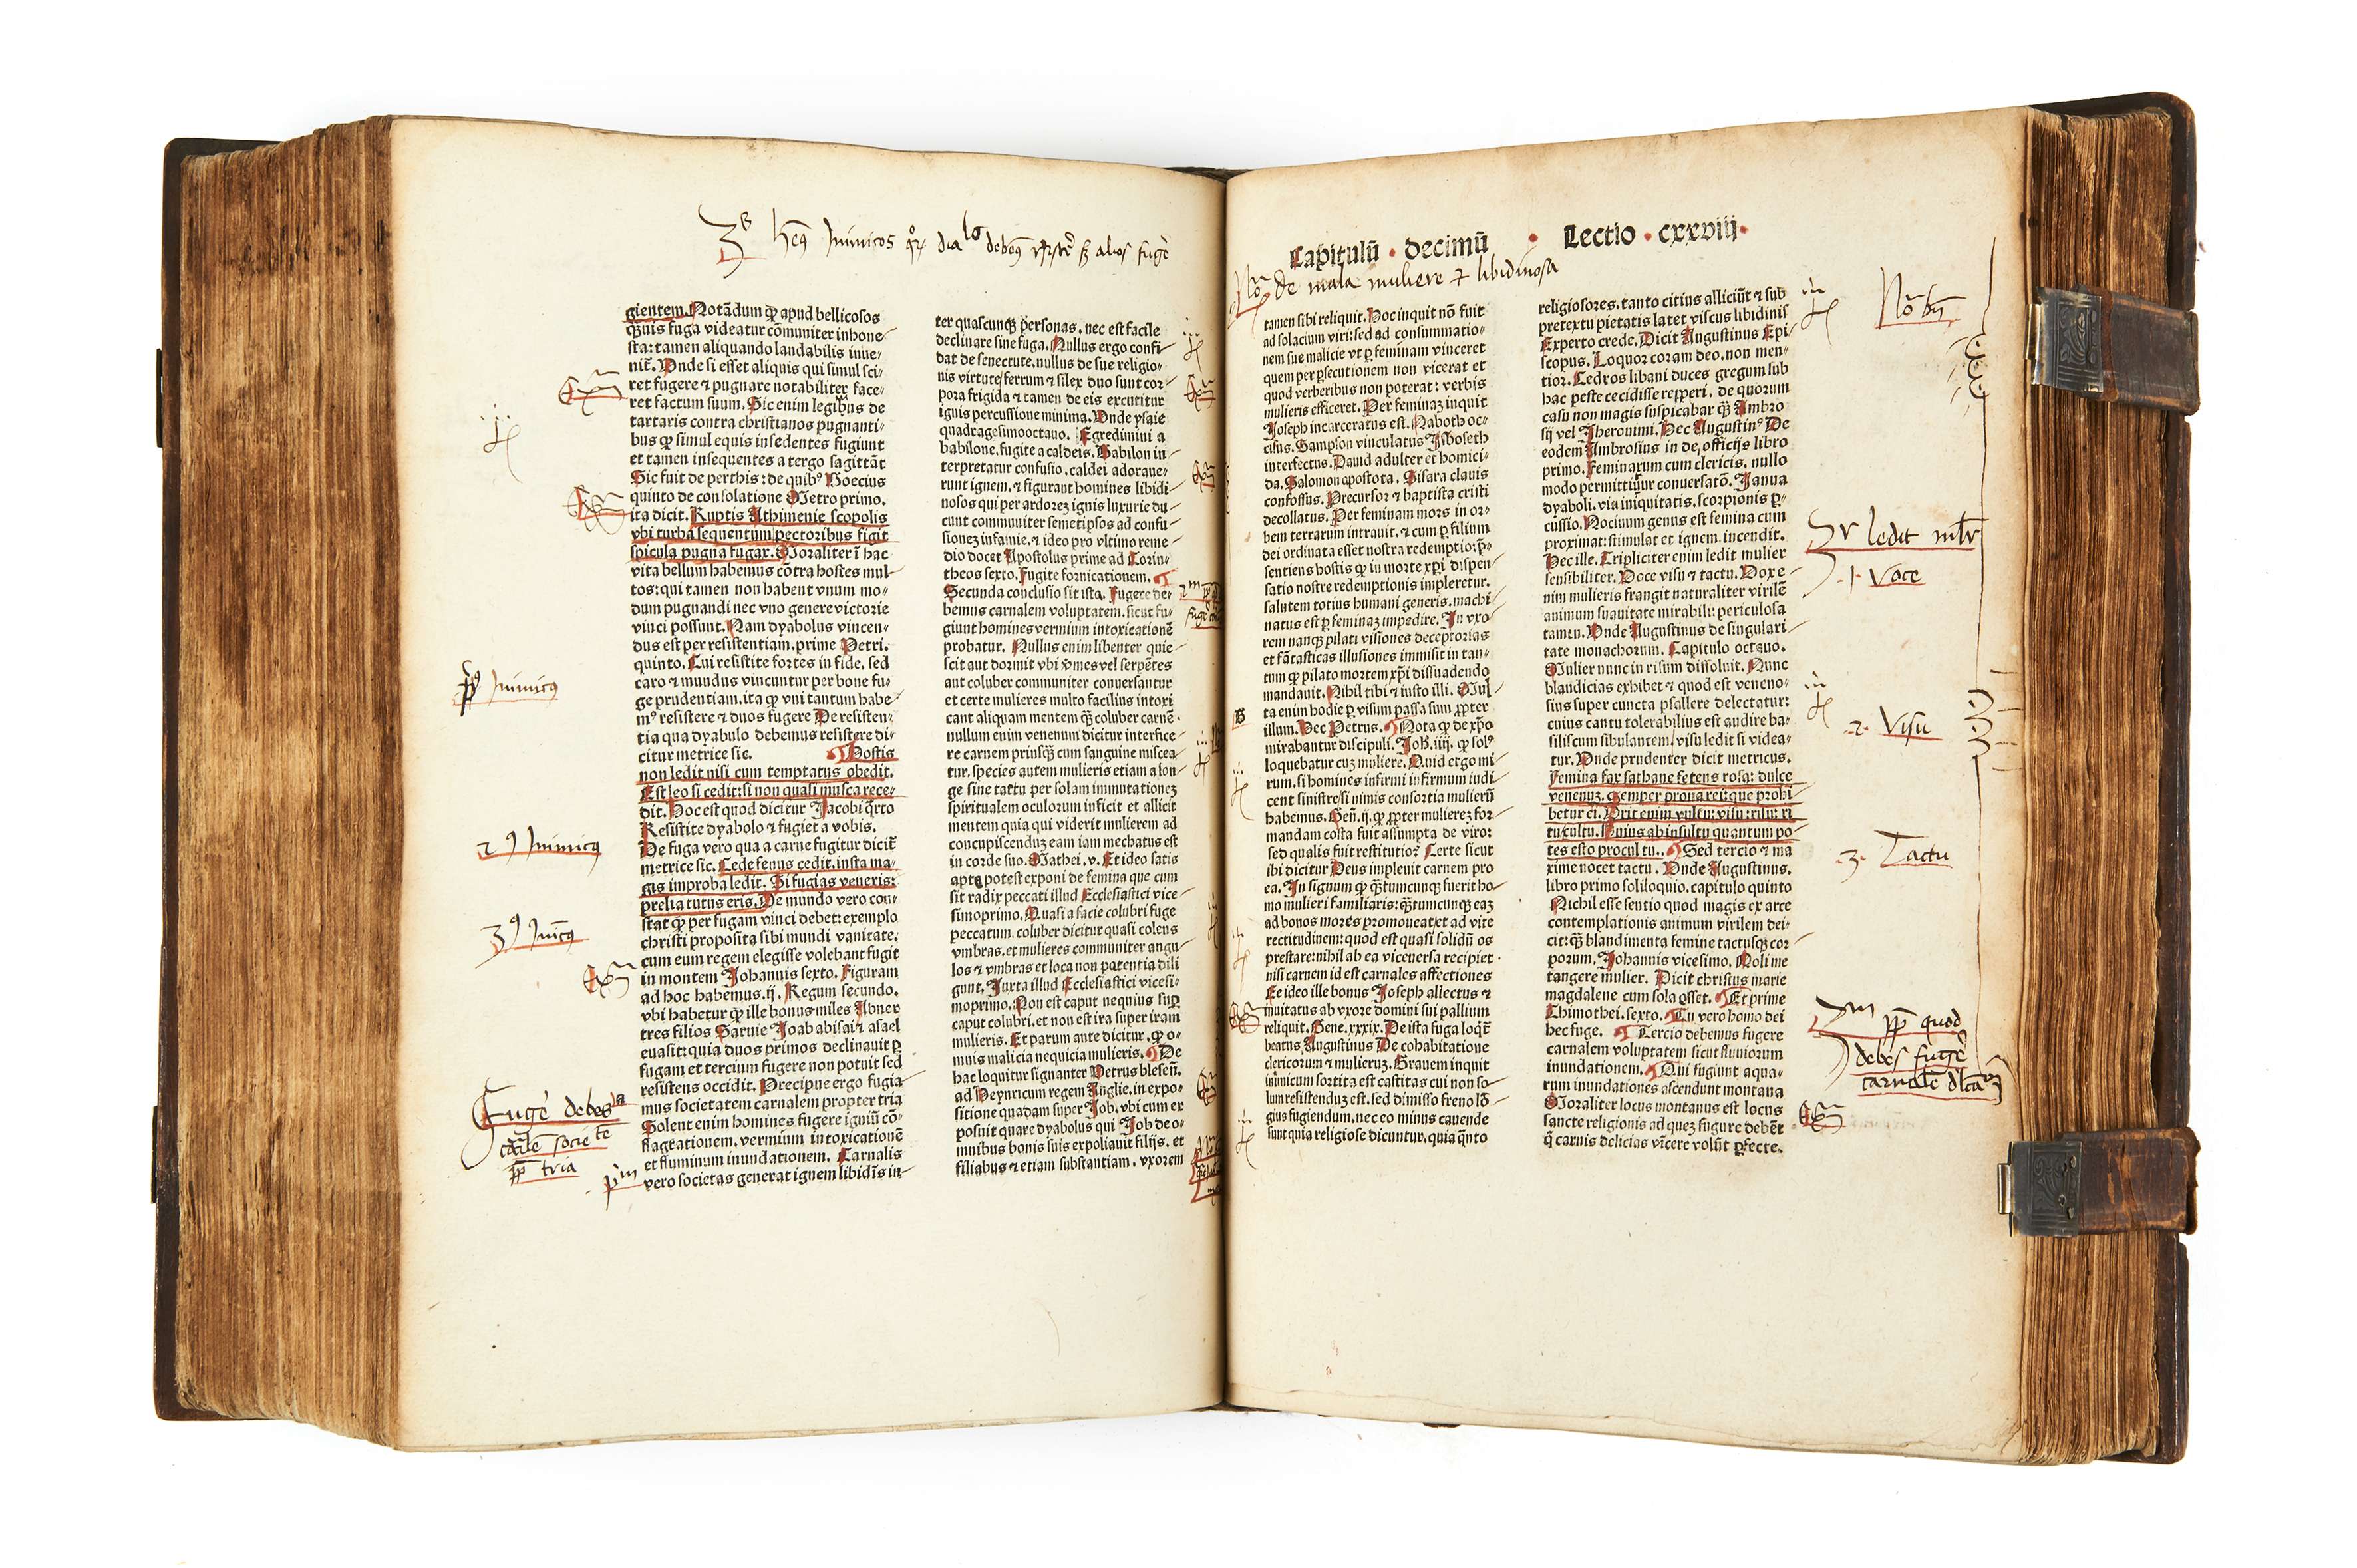 3ᵉˢ hēꝰ Inimicos
gientem. Notādum ꝙ apud bellicosos
ꝙuis fuga videatur cōmuniter inhone⸗
sta: tamen aliquando landabilis inue⸗
nit̄. Vnde si esset aliquis qui simul sci⸗
ret fugere ⁊ pugnare notabiliter face⸗
ret factum suum. Sic enim legibus de
tartaris contra christianos pugnanti⸗
bus ꝙ simul equis insedentes fugiunt
et tamen insequentes a tergo sagittāt
Sic fuit de perthis: de quibꝰ Boecius
quinto de consolatione Metro primo.
ita dicit. Ruptis Athimenie scopolis
vbi turba sequentum pectoribus figit
spicula pugna fugax. Moraliter ī hac
vita bellum habemus cōtra hostes mul⸗
tos: qui tamen non habent vnum mo⸗
dum pugnandi nec vno genere victorie
vinci possunt. Nam dyabolus vincen⸗
dus est per resistentiam. prime Petri.
quinto. Cui resistite fortes in fide. sed
caro ⁊ mundus vincuntur per bone fu⸗
ge prudentiam. ita ꝙ vni tantum habe
mꝰ resistere ⁊ duos fugere De resisten⸗
tia qua dyabulo debemus resistere di⸗
citur metrice sic. ¶Hostis
non ledit nisi cum temptatus obedit.
Est leo si cedit: si non quasi musca rece⸗
dit. Hoc est quod dicitur Jacobi q̄rto
Resistite dyabolo ⁊ fugiet a vobis.
De fuga vero qua a carne fugitur dicit̄
metrice sic. Cede fenus cedit. insta ma⸗
gis improba ledit. Si fugias veneris:
prelia tutus eris. De mundo vero con⸗
stat ꝙ per fugam vinci debet: exemplo
christi proposita sibi mundi vanitate.
cum eum regem elegisse volebant fugit
in montem Johannis sexto. Figuram
ad hoc habemus. ij. Regum secundo.
vbi habetur ꝙ ille bonus miles Abner
tres filios Saruie Joab abisai ⁊ asael
euasit: quia duos primos declinauit ꝑ
fugam et tercium fugere non potuit sed
resistens occidit. Precipue ergo fugia⸗
mus societatem carnalem propter tria
Solent enim homines fugere igniū cō⸗
flagrationem. vermium intoxicationē
et fluminum inundationem. Carnalis
vero societas generat ignem libidīs in⸗
ter quascunqꝫ personas. nec est facile
declinare sine fuga. Nullus ergo confi⸗
dat de senectute. nullus de sue religio⸗
nis virtute ferrum ⁊ silex duo sunt cor⸗
pora frigida ⁊ tamen de eis excutitur
ignis percussione minima. Vnde ysaie
quadragesimooctauo. Egredimini a
babilone. fugite a caldeis. Babilon in⸗
terpretatur confusio. caldei adoraue⸗
runt ignem. ⁊ figurant homines libidi⸗
nosos qui per ardorez ignis luxurie du⸗
cunt communiter semetipsos ad confu⸗
sionez infamie. ⁊ ideo pro vltimo reme⸗
dio docet Apostolus prime ad Corin⸗
theos sexto. Fugite fornicationem. ¶
Secunda conclusio sit ista. Fugere de⸗
bemus carnalem voluptatem. sicut fu⸗
giunt homines vermium intoxicationē
probatur. Nullus enim libenter quie⸗
scit aut dormit vbi v̄mes vel serpētes
aut coluber communiter conuersantur
et certe mulieres multo facilius intoxi
cant aliquam mentem ꝙ̄ coluber carnē.
nullum enim venenum dicitur interfice⸗
re carnem prinsqꝫ cum sanguine miscea⸗
tur. species autem mulieris etiam a lon⸗
ge sine tactu per solam immutationez
spiritualem oculorum inficit et allicit
mentem quia qui viderit mulierem ad
concupiscenduz eam iam mechatus est
in corde suo. Mathei. v. Et ideo satis
apte potest exponi de femina que cum
sit radix peccati illud Ecclesiastici vice⸗
simoprimo. Quasi a facie colubri fuge
peccatum. coluber dicitur quasi colens
vmbras. et mulieres communiter angu⸗
los ⁊ vmbras et loca non patentia dili
gunt. Juxta illud Ecclesiastici vicesi⸗
moprimo. Non est caput nequius suꝑ
caput colubri. et non est ira super iram
mulieris. Et parum ante dicitur. ꝙ o⸗
mnis malicia nequicia mulieris. ¶De
hac loquitur signanter Petrus blesen̄.
ad Heynricum regem Anglie. in expo⸗
sitione quadam super Job. vbi cum ex
posuit quare dyabolus qui Job de o⸗
mnibus bonis suis expoliauit filijs. et
filiabus ⁊ etiam substantiam. vxorem
pꝰ Inimicꝰ
2ꝰ Inimicꝰ
3ꝰ Inīcꝰ
Fugē debes
carlē societē
pp̄ tria
pm
Capitulū · decimū · Lectio · cxxviij·
No de mala muliere ⁊ libidinosa
tamen sibi reliquit. Hoc inquit nō fuit
ad solacium viri: sed ad consummatio⸗
nem sue malicie vt ꝑ feminam vinceret
quem per ꝑsecutionem non vicerat et
quod verberibus non poterat: verbis
mulieris efficeret. Per feminaz inquit
Joseph incarceratus est. Naboth oc⸗
cisus. Sampson vinculatus Jsboseth
interfectus. Dauid adulter et homici⸗
da. Salomon apostota. Sisara clauis
confossus. Precursor ⁊ baptista cristi
decollatus. Per feminam mors in or⸗
bem terrarum intrauit. ⁊ cum ꝑ filium
dei ordinata esset nostra redemptio: p̄⸗
sentiens hostis ꝙ in morte xp̄i dispen⸗
satio nostre redemptionis impleretur.
salutem totius humani generis. machi⸗
natus est ꝑ feminaz impedire. In vxo⸗
rem nanqꝫ pilati visiones deceptorias
et fātasticas illusiones immisit in tan⸗
tum ꝙ pilato mortem xp̄i dissuadendo
mandauit. Nihil tibi ⁊ iusto illi. Mul⸗
ta enim hodie ꝑ visum passa sum ꝓpter
illum. Hec Petrus. ¶Nota ꝙ de xp̄o
mirabantur discipuli. Joh̄. iiij. ꝙ solꝰ
loquebatur cuz muliere. Quid ergo mi⸗
rum. si homines infirmi infirmum iudi⸗
cent sinistre si nimis consortia mulierū
habemus. Gen̄. ij. ꝙ ꝓpter mulierez for⸗
mandam costa fuit assumpta de viro:
sed qualis fuit restitutio? Certe sicut
ibi dicitur Deus impleuit carnem pro
ea. In signum ꝙ ꝙ̄tumcunqꝫ fuerit ho⸗
mo mulieri familiaris: ꝙ̄tumcunqꝫ eaz
ad bonos mores promoueat et ad vite
rectitudinem: quod est quasi solidū os
prestare: nihil ab ea viceuersa recipiet.
nisi carnem id est carnales affectiones
Et ideo ille bonus Joseph allectus ⁊
inuitatus ab vxore domini sui pallium
reliquit. Gene. xxxix. De ista fuga loqt̄
beatus Augustinus De cohabitatione
clericorum ⁊ mulieruz. Grauem inquit
inimicum sortita est castitas cui non so⸗
lum resistenduz est. sed dimisso freno lō⸗
gius fugiendum. nec eo minus cauende
sunt quia religiose dicuntur. quia q̄nto
religiosores. tanto citius alliciūt ⁊ sub
pretextu pietatis latet viscus libidinis
Experto crede. Dicit Augustinus Epi⸗
scopus. Loquor coram deo. non men⸗
tior. Cedros libani duces gregum sub
hac peste cecidisse reꝑeri. de quorum
casu non magis suspicabar ꝙ̄ Ambro
sij vel Jheronimi. Hec Augustinꝰ De
eodem Ambrosius in de officijs libro
primo. Feminarum cum clericis. nullo
modo permittitur conuersatō. Janua
dyaboli. via iniquitatis. scorpionis ꝑ⸗
cussio. Nociuum genus est femina cum
proximat: stimulat et ignem incendit.
Hec ille. Tripliciter enim ledit mulier
sensibiliter. Voce visu ⁊ tactu. Vox e⸗
nim mulieris frangit naturaliter virilē
animum suauitate mirabili: periculosa
tamen. Vnde Augustinus de singulari⸗
tate monachorum. Capitulo octauo.
Mulier nunc in risum dissoluit. Nunc
blandicias exhibet ⁊ quod est veneno⸗
sius super cuncta psallere delectatur:
cuius cantu tolerabilius est audire ba⸗
siliscum sibulantem/ visu ledit si videa⸗
tur. Vnde prudenter dicit metricus.
Femina fax sathane fetens rosa: dulce
venenuz. Semper prona rei: que prohi⸗
betur ei. Vrit enim vultu: visu: risu: ri
tu: cultu. Huius ab insultu quantum po⸗
tes esto procul tu.. ¶Sed tercio ⁊ ma
xime nocet tactu. Vnde Augustinus.
libro primo soliloquio. capitulo quinto
Nichil esse sentio quod magis ex arce
contemplationis animum virilem dei⸗
cit: ꝙ̄ blandimenta femine tactusqꝫ cor⸗
porum. Johannis vicesimo. Noli me
tangere mulier. Dicit christus marie
magdalene cum sola esset. ¶Et prime
Thimothei. sexto. ¶Tu vero homo dei
hec fuge. ¶Tercio debemus fugere
carnalem voluptatem sicut fluuiorum
inundationem. ¶Qui fugiunt aqua⸗
rum inundationes ascendunt montana
Moraliter locus montanus est locus
sancte religionis ad quez fugure debēt
q̄ carnis delicias vīcere volūt ꝑfecte.
No bn̄
3ʳ ledit mlr̄
·1· Voce
·2· Visu
·3· Tactu
3m pp̄ quod
debes fugē
carnalē